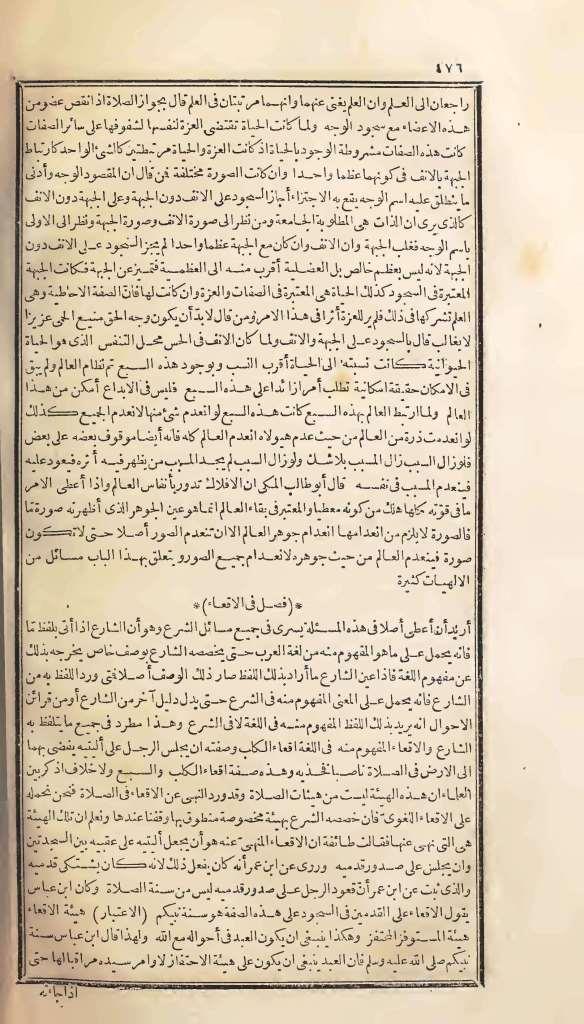 ٤٧٦
راجعان الى العلم وان العلم يغنى عنهما وانهما مرتبتان فى العلم قال بجواز الصلاة اذا نقص عضو من
هذه الاعضاء مع سجود الوجه ولما كانت الحياة تقتضى العزة لنفسها لشفوفها على سائر الصفات
كانت هذه الصفات مشروطة الوجود بالحياة اذ كانت العزة والحياة مرتبطتين كالشئ الواحد كارتباط
الجبهة بالانف فى كونهما عظما واحدا وان كانت الصورة مختلفة فمن قال ان المقصود الوجه وأدنى
ما ينطلق عليه اسم الوجه يقع به الاجتزاء أجاز السجود على الانف دون الجبهة وعلى الجبهة دون الانف
كالذى يرى ان الذات هى المطلوبة الجامعة ومن نظر الى صورة الانف وصورة الجبهة ونظر الى الاولى
باسم الوجه فغلب الجبهة وان الانف وان كان مع الجبهة عظما واحدا لم يجز السجود على الانف دون
الجبهة لانه ليس بعظم خالص بل العضلية أقرب منه الى العظمية فتميز عن الجبهة فكانت الجبهة
المعتبرة فى السجود كذلك الحياة هى المعتبرة فى الصفات والعزة وان كانت لها فانّ الصفة الاحاطية وهى
العلم تشركها فى ذلك فلم ير للعزة أثرا فى هذا الامر ومن قال لا بدّ أن يكون وجه الحق منيع الحمى عزيزا
لا يغالب قال بالسجود على الجبهة والانف ولما كان الانف فى الحس محل التنفس الذى هو الحياة
الحيوانية كانت نسبته الى الحياة أقرب النسب وبوجود هذه السبع تم نظام العالم ولم يبق
فى الامكان حقيقة امكانية تطلب أمرا زائدا على هذه السبع فليس فى الابداع أمكن من هذا
العالم ولما ارتبط العالم بهذه السبع كانت هذه السبع لو انعدم شئ منها لانعدم الجميع كذلك
لو انعدمت ذرة من العالم من حيث عدم هيولاه انعدم العالم كله فانه أيضا موقوف بعضه على بعض
فلو زال السبب زال المسبب بلا شك ولو زال المسبب لم يجد السبب من يظهر فيه أثره فيعود عليه
فينعدم السبب فى نفسه قال أبو طالب المكى ان الافلاك تدور بأنفاس العالم واذا أعطى الامر
ما فى قوته كلها هلك من كونه معطيا والمعتبر فى بقاء العالم انما هو عين الجوهر الذى أظهرته صورة ما
فالصورة لا يلزم من انعدامها انعدام جوهر العالم الا ان تنعدم الصور أصلا حتى لا تكون
صورة فينعدم العالم من حيث جوهره لانعدام جميع الصور ويتعلق بهذا الباب مسائل من
الالهيات كثيرة
* (فصل فى الاقعاء) *
أريد أن أعطى أصلا فى هذه المسئلة يسرى فى جميع مسائل الشرع وهو أن الشارع اذا أتى بلفظ مّا
فانه يحمل على ما هو المفهوم منه من لغة العرب حتى يخصصه الشارع بوصف خاص يخرجه بذلك
عن مفهوم اللغة فاذا عين الشارع ما أراد بذلك اللفظ صار ذلك الوصف أصلا فتى ورد اللفظ به من
الشارع فانه يحمل على المعنى المفهوم منه فى الشرع حتى يدل دليل آخر من الشارع أو من قرائن
الاحوال انه يريد بذلك اللفظ المفهوم منه فى اللغة لا فى الشرع وهذا مطرد فى جميع ما يتلفظ به
الشارع والاقعاء المفهوم منه فى اللغة اقعاء الكلب وصفته ان يجلس الرجل على أليتيه يفضى بهما
الى الارض فى الصلاة ناصبا فخذيه وهذه صفة اقعاء الكلب والسبع ولا خلاف اذكر بين
العلماء ان هذه الهيئة ليست من هيئات الصلاة وقد ورد النهى عن الاقعاء فى الصلاة فنحن نحمله
على الاقعاء اللغوى فان خصصه الشرع بهيئة مخصوصة منطوق بها وقفنا عندها ونعلم ان تلك الهيئة
هى التى نهى عنها فقالت طائفة ان الاقعاء المنهى عنه هو أن يجعل أليتيه على عقبيه بين السجدتين
وان يجلس على صدور قدميه وروى عن ابن عمر أنه كان يفعل ذلك لانه كان يشتكى قدميه
والذى ثبت عن ابن عمر أنّ قعود الرجل على صدور قدميه ليس من سنة الصلاة وكان ابن عباس
يقول الاقعاء على القدمين فى السجود على هذه الصفة هو سنة نبيكم (الاعتبار) هيئة الاقعاء
هيئة المستوفز المحتفز وهكذا ينبغى ان يكون العبد فى أحواله مع الله ولهذا قال ابن عباس سنة
نبيكم صلى الله عليه وسلم فان العبد ينبغى ان يكون على هيئة الاحتفاز لاوامر سيده مراقبا لها حتى
اذا جاءته